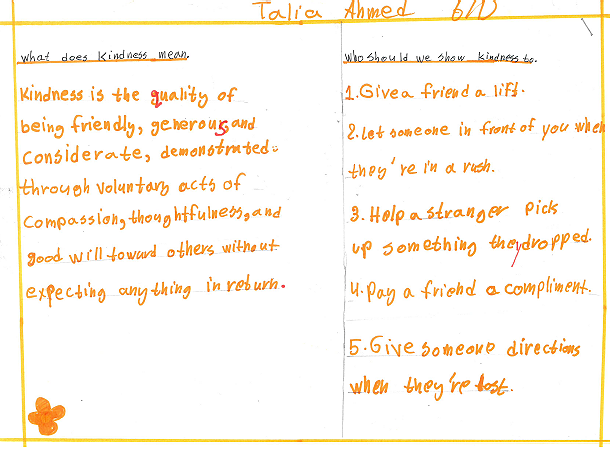 Talia Ahmed 6/D
What does kindness mean.
Kindness is the quality of
being friendly, generous, and
considerate, demonstrated
through voluntary acts of
compassion, thoughtfulness, and
good will toward others without
expecting anything in return.
Who should we show kindness to.
1. Give a friend a lift.
2. Let someone in front of you when
they're in a rush.
3. Help a stranger pick
up something they dropped.
4. Pay a friend a compliment.
5. Give someone directions
when they're lost.